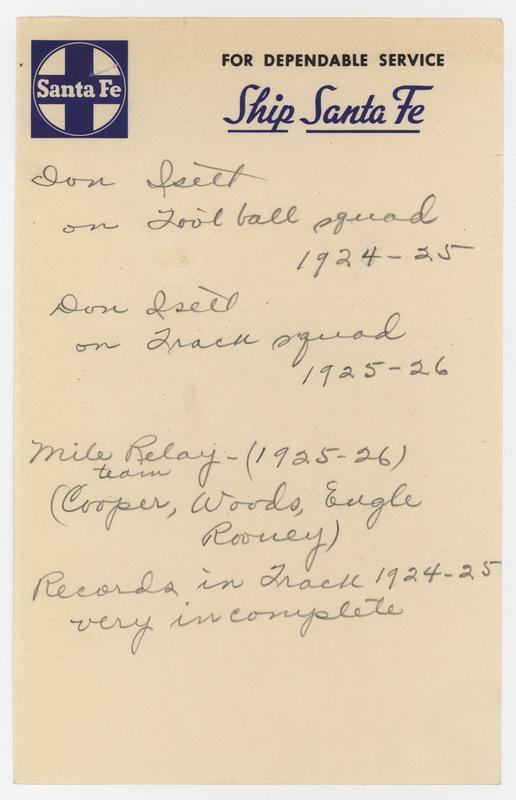 Santa Fe
FOR DEPENDABLE SERVICE
Ship Santa Fe
Don Isett
on Football squad
1924-25
Don Isett
on Track squad
1925-26
Mile Relay - (1925-26)
team
(Cooper, Woods, Engle
Rooney)
Records in Track 1924-25
very incomplete